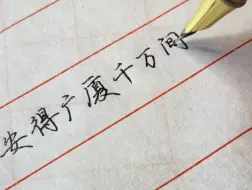 安得广厦千万间